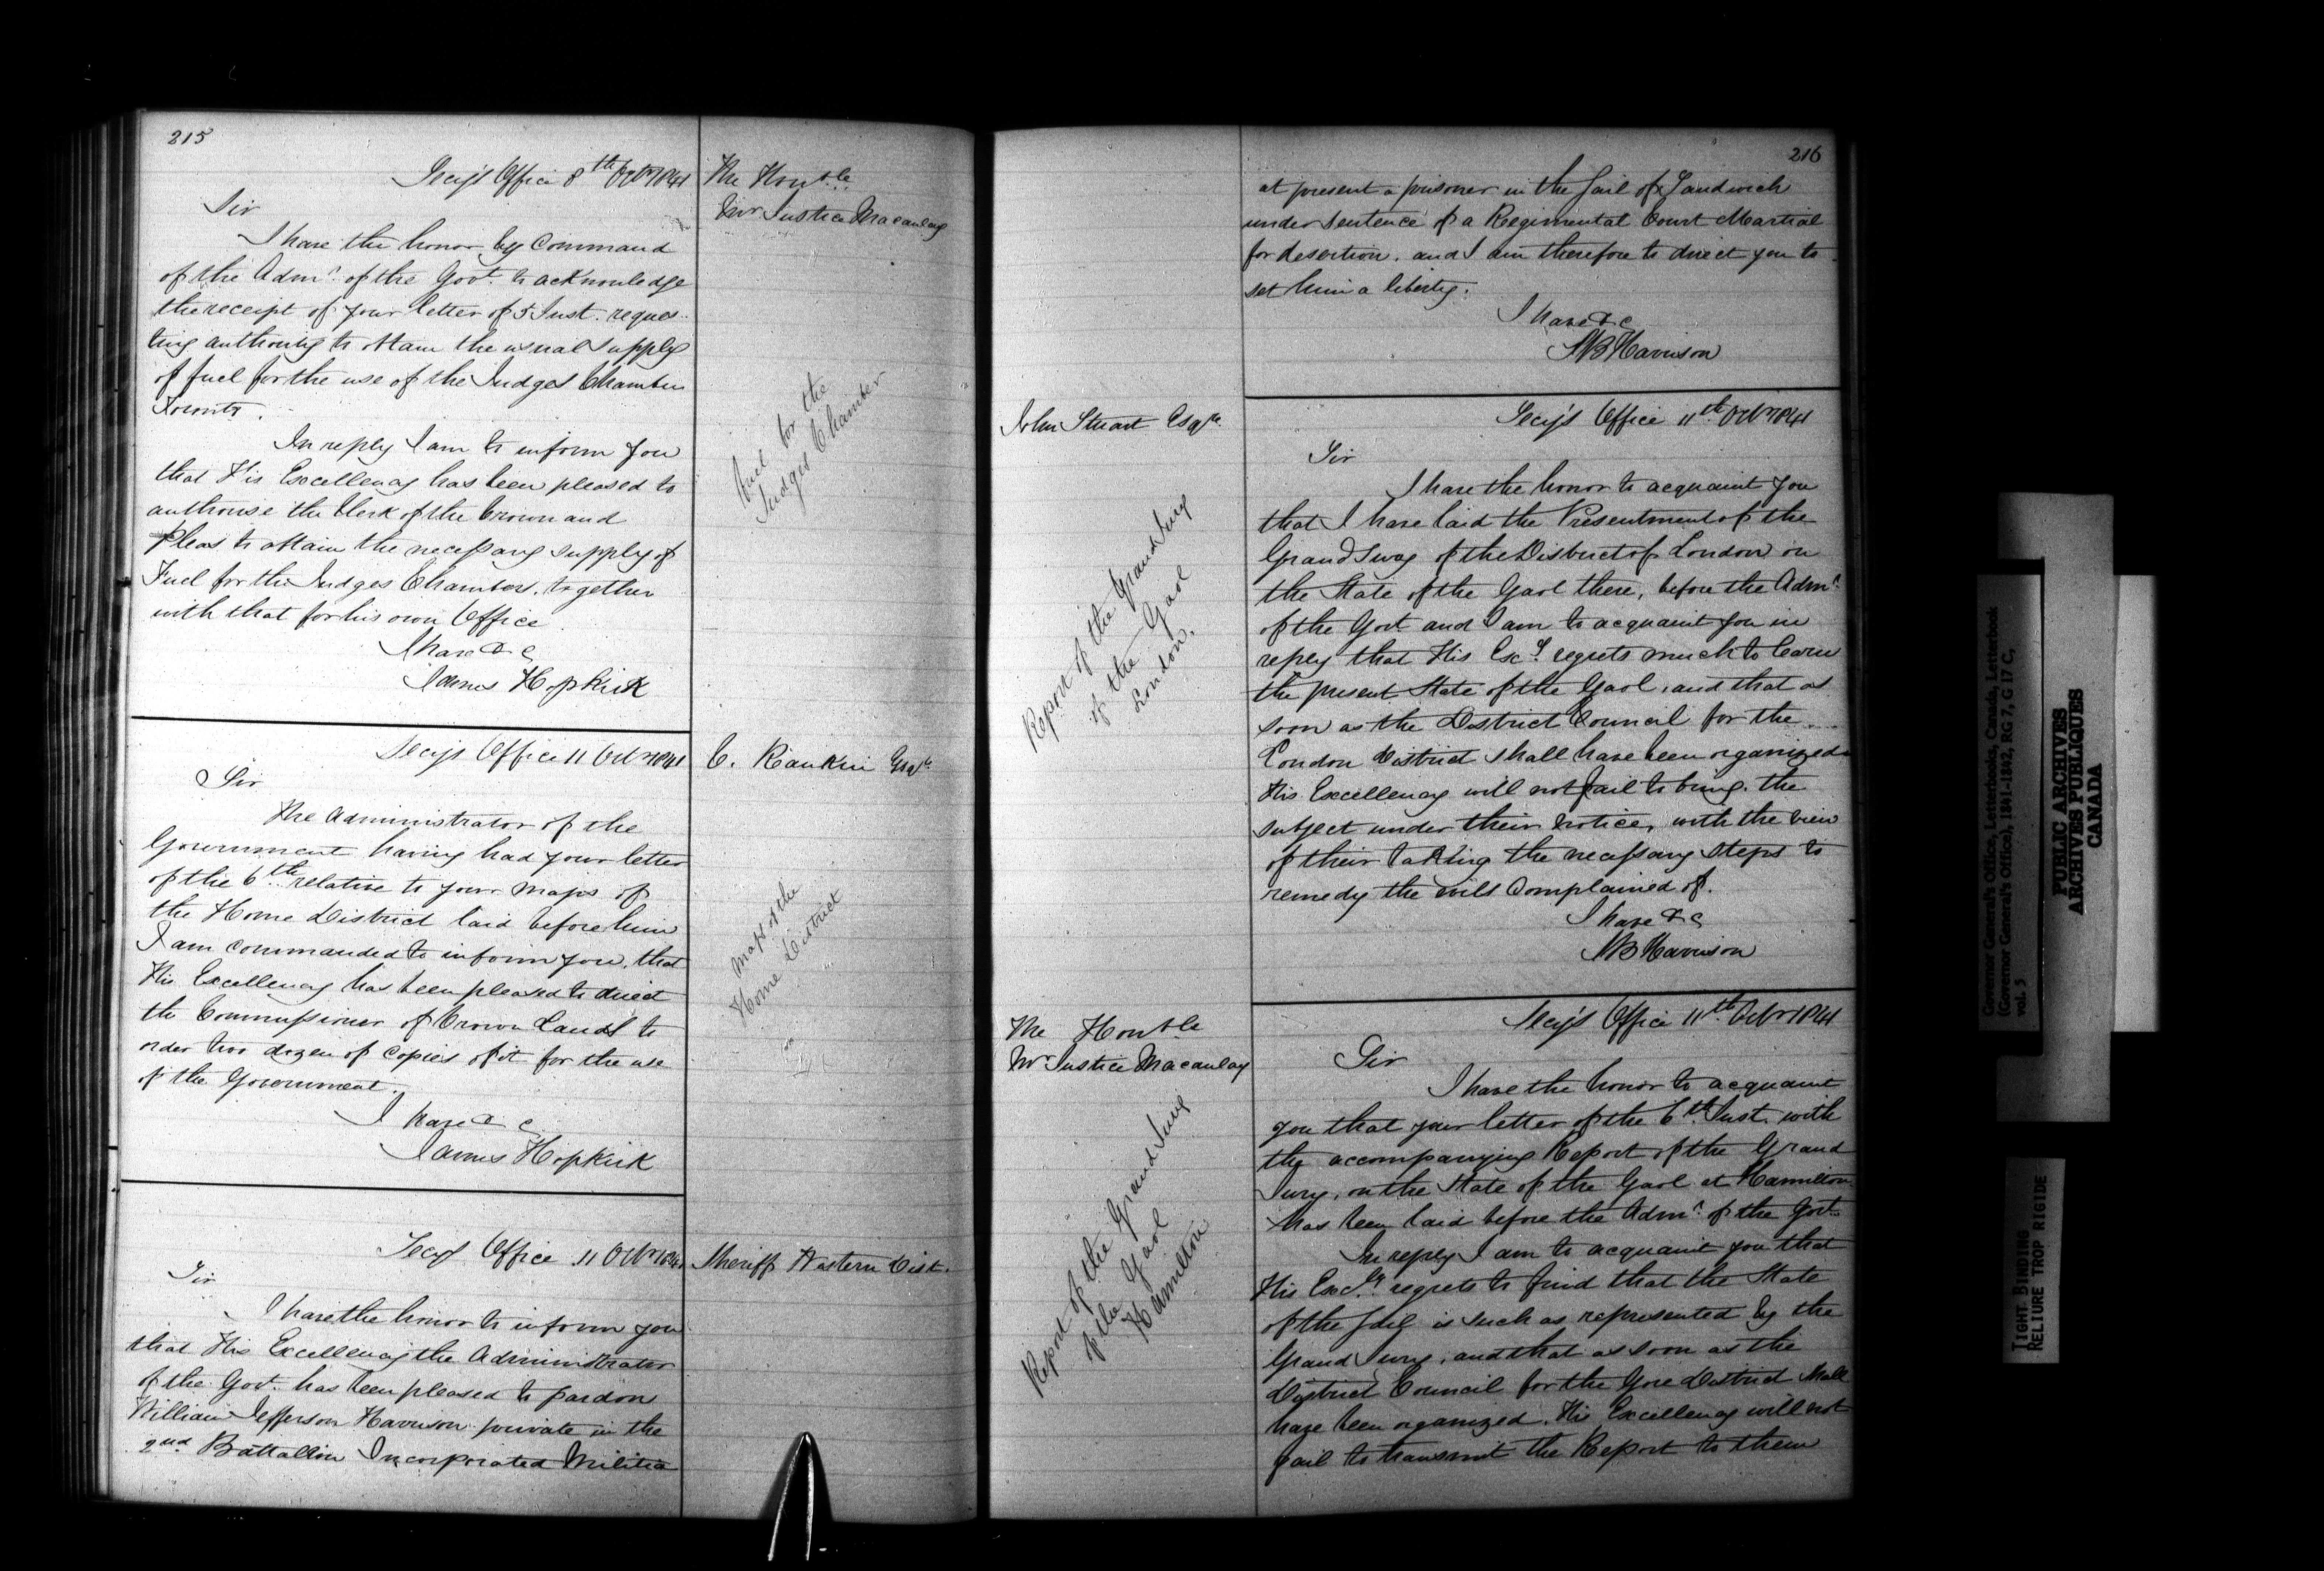 215
Secy's Office 8th Octr 1841
The Honble
Mr Justice Macaulay
Sir
I have the honor by Command
of the Admr of the Govt. to acknowledge
the receipt of your letter of 5 Inst. reques-
ting authority to obtain the usual supply
of fuel for the use of the Judges Chamber
Toronto.
Fuel for the
Judges Chamber
In reply I am to inform you
that His Excellency has been pleased to
authorise the Clerk of the Crown and
Pleas to obtain the necessary supply of
Fuel for the Judges Chambers, together
with that for his own Office
I have &c
James Hopkirk
Secy's Office 11 Octr 1841
C. Rankin Esqr
Sir
The Administrator of the
Government having had your letter
of the 6th relative to your maps of
the Home District laid before him
I am commanded to inform you, that
His Excellency has been pleased to direct
the Commissioner of Crown Lands to
order two dozen of copies of it for the use
of the Government.
Maps of the
Home District
I have &c
James Hopkirk
Secys Office 11 Octr 1841
Sheriff Western Dist.
Sir
I have the honor to inform you
that His Excellency the Administrator
of the Govt. has been pleased to pardon
William Jefferson Harrison private in the
2nd Battallion Incorporated Militia
216
at present a prisoner in the Jail of Sandwich
under sentence of a Regimental Court Martial
for desertion. and I am therefore to direct you to
set him a liberty.
I have &c
SB Harrison
John Stuart Esqre
Secy's Office 11th Octr 1841
Sir
I have the honor to acquaint you
that I have laid the Presentment of the
Grand Jury of the District of London on
the State of the Gaol there, before the Admr
of the Govt and I am to acquaint you in
reply that His Excy regrets much to learn
the present State of the Gaol, and that as
soon as the District Council for the
London District shall have been organized
His Excellency will not fail to bring the
subject under their notice, with the view
of their taking the necessary steps to
remedy the evils Complained of.
Report of the Grand Jury
of the Gaol
London.
I have &c
SB Harrison
The Honble
Mr Justice Macaulay
Secy's Office 11th Octr 1841
Sir
I have the honor to acquaint
you that your letter of the 6th Inst. with
the accompanying Report of the Grand
Jury, on the State of the Gaol at Hamilton
has been laid before the Admr of the Govt.
Report of the Grand Jury
of the Gaol
Hamilton
In reply I am to acquaint you that
His Excly regrets to find that the State
of the Jail is such as represented by the
Grand Jury, and that as soon as the
District Council for the Gore District shall
have been organized, His Excellency will not
fail to transmit the Report to them
Governor General's Office, Letterbooks, Canada, Letterbook
(Governor General's Office), 1841-1842, RG 7, G 17 C,
vol. 5
PUBLIC ARCHIVES
ARCHIVES PUBLIQUES
CANADA
TIGHT BINDING
RELIURE TROP RIGIDE